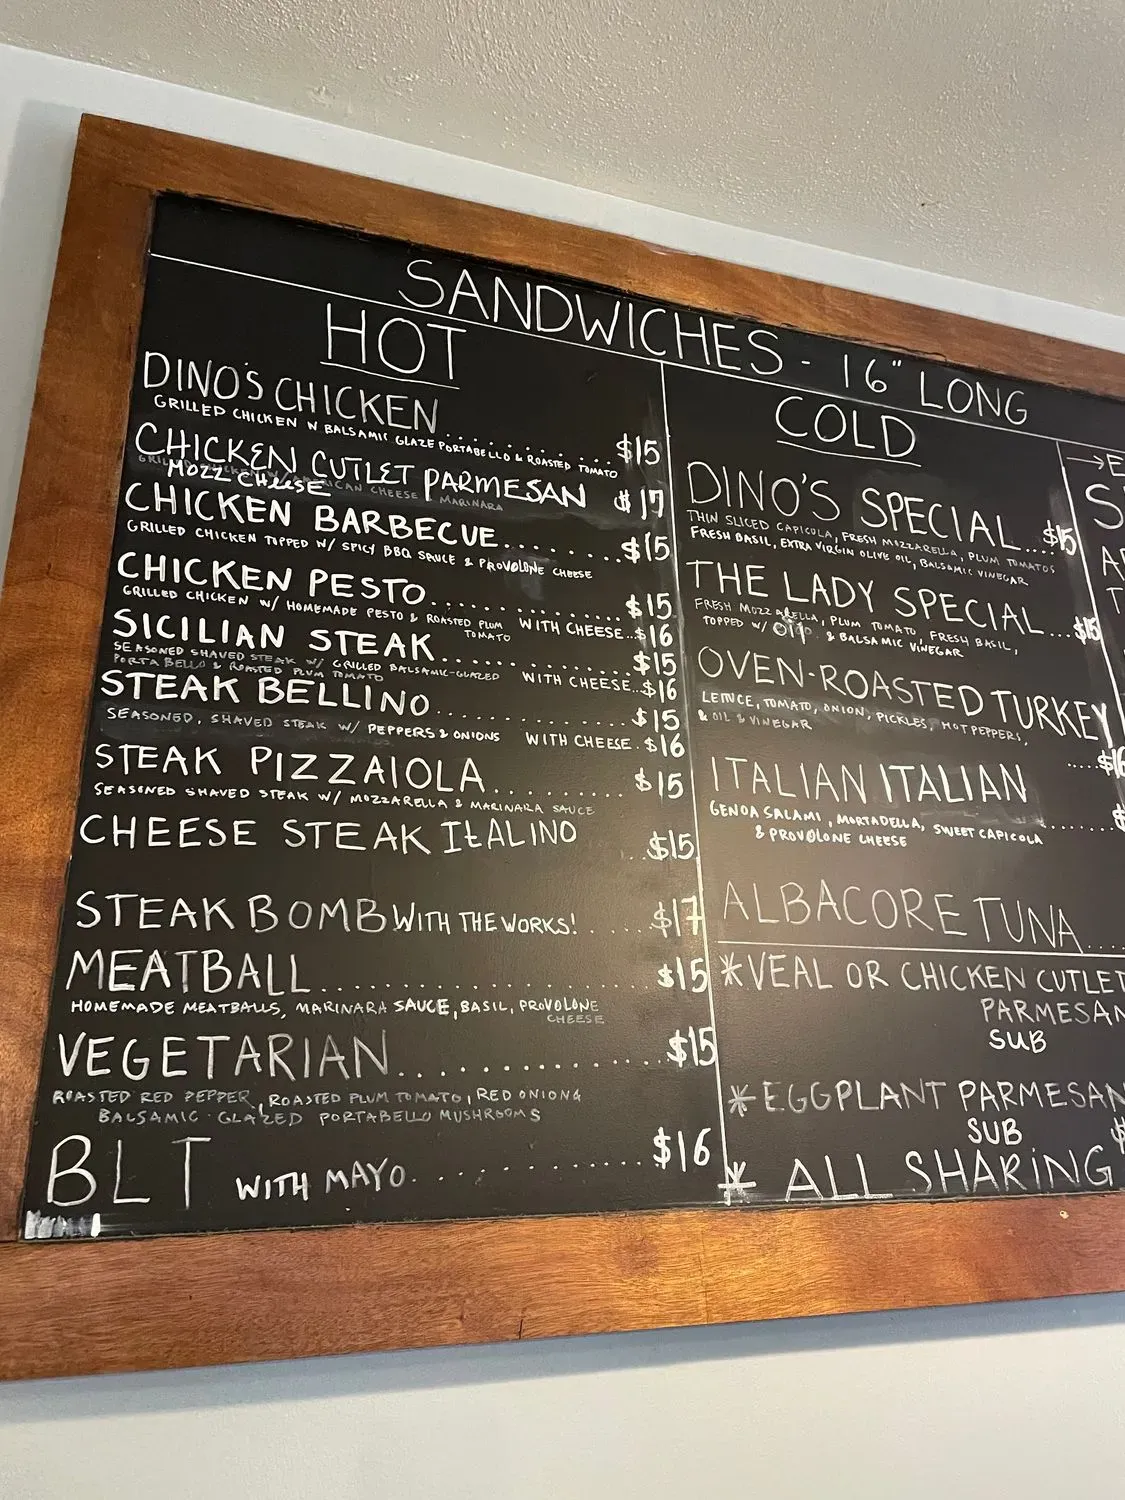 SANDWICHES - 16" LONG
HOT
DINO'S CHICKEN.......... $15
GRILLED CHICKEN W BALSAMIC GLAZE PORTABELLO & ROASTED TOMATO
CHICKEN CUTLET PARMESAN $17
MOZZ CHEESE
CHICKEN BARBECUE........ $15
GRILLED CHICKEN TOPPED W/ SPICY BBQ SAUCE & PROVOLONE CHEESE
CHICKEN PESTO............ $15
GRILLED CHICKEN W/ HOMEMADE PESTO & ROASTED PLUM TOMATO
WITH CHEESE...$16
SICILIAN STEAK........... $15
SEASONED SHAVED STEAK W/ GRILLED BALSAMIC-GLAZED
PORTABELLO & ROASTED PLUM TOMATO
WITH CHEESE...$16
STEAK BELLINO............ $15
SEASONED, SHAVED STEAK W/ PEPPERS & ONIONS WITH CHEESE.$16
STEAK PIZZAIOLA......... $15
SEASONED SHAVED STEAK W/ MOZZARELLA & MARINARA SAUCE
CHEESE STEAK ITALINO
...$15
STEAK BOMB WITH THE WORKS!.....$17
MEATBALL................. $15
HOMEMADE MEATBALLS, MARINARA SAUCE, BASIL, PROVOLONE
CHEESE
VEGETARIAN.............. $15
ROASTED RED PEPPER, ROASTED PLUM TOMATO, RED ONION &
BALSAMIC-GLAZED PORTABELLO MUSHROOMS
BLT WITH MAYO............ $16
COLD
DINO'S SPECIAL....$15
THIN SLICED CAPICOLA, FRESH MIZZARELLA, PLUM TOMATOS
FRESH BASIL, EXTRA VIRGIN OLIVE OIL, BALSAMIC VINEGAR
THE LADY SPECIAL...$15
FRESH MOZZARELLA, PLUM TOMATO, FRESH BASIL,
TOPPED W/ OIL & BALSAMIC VINEGAR
OVEN-ROASTED TURKEY
LETTUCE, TOMATO, ONION, PICKLES, HOT PEPPERS,
& OIL & VINEGAR
.....$16
ITALIAN ITALIAN
GENOA SALAMI, MORTADELLA, SWEET CAPICOLA
& PROVOLONE CHEESE
ALBACORE TUNA....
*VEAL OR CHICKEN CUTLET
PARMESAN
SUB
*EGGPLANT PARMESAN
SUB
* ALL SHARING